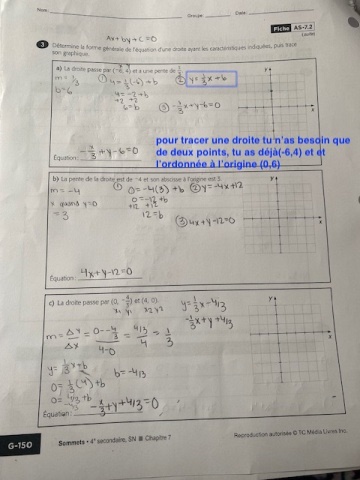 Nom: Groupe: Date:
Ax+by+C=0
Fiche AS-7.2
(suite)
3 Détermine la forme générale de l'équation d'une droite ayant les caractéristiques indiquées, puis trace
son graphique.
a) La droite passe par (-6, 4) et a une pente de 1/3
m = 1/3 ① 4 = 1/3(-6) + b ② y = 1/3x + 6
b=6 4 = -2 + b
+2 +2
6 = b ③ -1/3x + y - 6 = 0
Équation: -x/3 + y - 6 = 0
pour tracer une droite tu n'as besoin que
de deux points, tu as déjà(-6,4) et et
l'ordonnée à l'origine (0,6)
b) La pente de la droite est de -4 et son abscisse à l'origine est 3.
m = -4 ① 0 = -4(3) + b ② y = -4x+12
x quand y=0 0 = -12 + b
= 3 +12 +12
12 = b ③ 4x + y - 12 = 0
Équation: 4x + y - 12 = 0
c) La droite passe par (0, -4/3) et (4, 0).
x₁ y₁ x2 y2
y = 1/3x - 4/3
-1/3x + y + 4/3
m = Δy/Δx = 0 - -4/3 / 4-0 = 4/3 / 4 = 1/3
y = 1/3x + b
0 = 1/3(4) + b b = -4/3
0 = 4/3 + b
Équation: -x/3 + y + 4/3 = 0
G-150 Sommets • 4e secondaire, SN ■ Chapitre 7 Reproduction autorisée © TC Média Livres Inc.